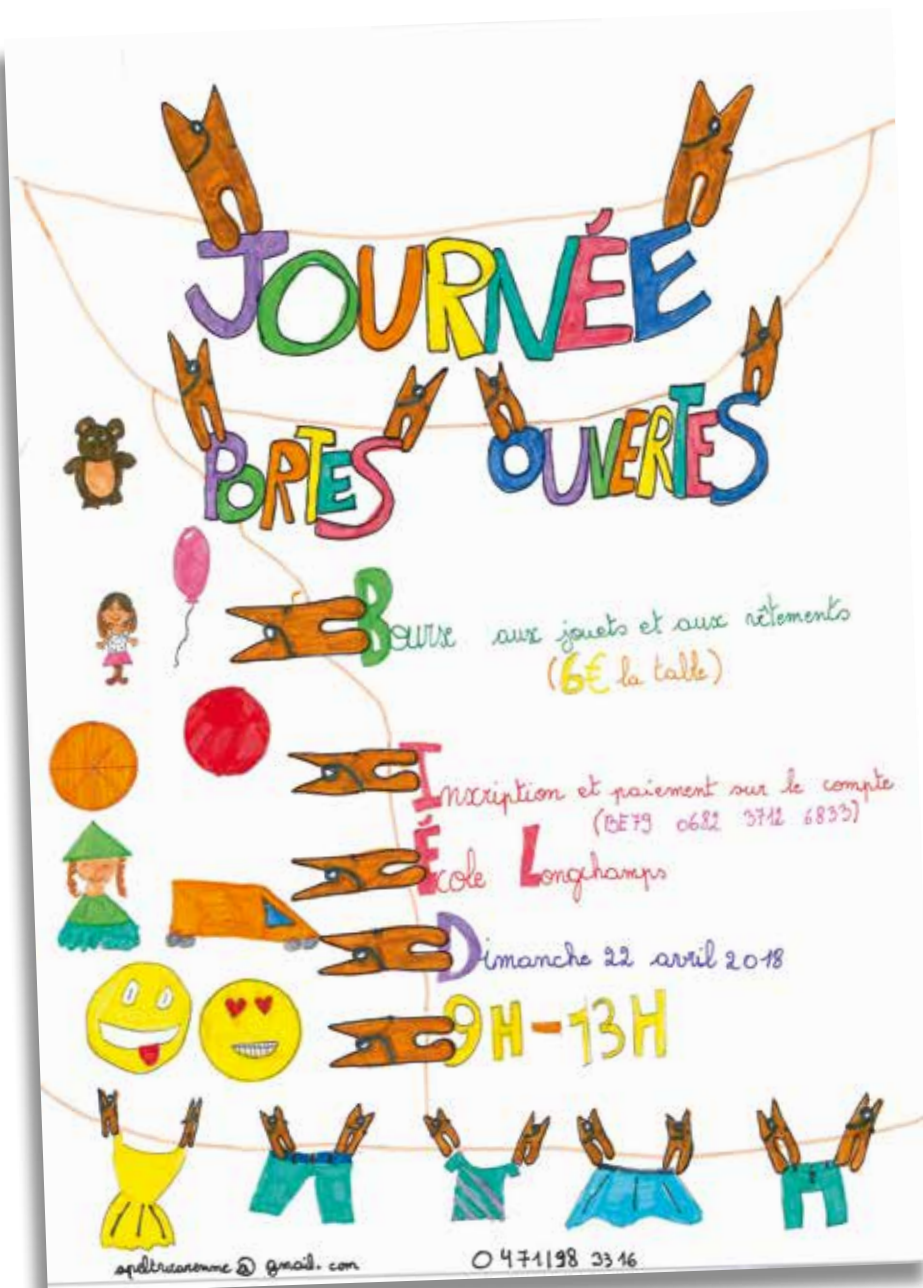 JOURNÉE
PORTES OUVERTES
Bourse aux jouets et aux vêtements
(6€ la table)
Inscription et paiement sur le compte
(BE79 0682 3712 6833)
École Longchamps
Dimanche 22 avril 2018
9H-13H
@ gmail.com 0471198 3316